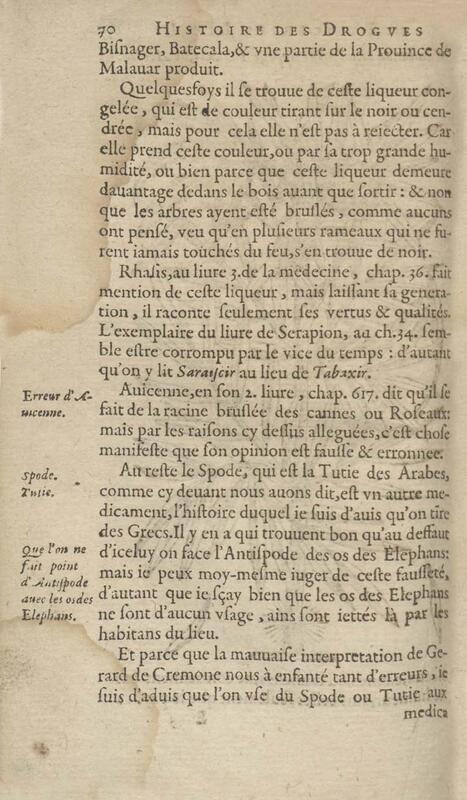 70 HISTOIRE DES DROGVES
Bisnager, Batecala,& vne partie de la Prouince de
Malauar produit.
Quelquesfoys il se trouue de ceste liqueur con-
gelée, qui est de couleur tirant sur le noir ou cen-
drée, mais pour cela elle n'est pas à reiecter. Car
elle prend ceste couleur,ou par sa trop grande hu-
midité, ou bien parce que ceste liqueur demeure
dauantage dedans le bois auant que sortir : & non
que les arbres ayent esté bruslés, comme aucuns
ont pensé, veu qu'en plusieurs rameaux qui ne fu-
rent iamais touchés du feu,s'en trouue de noir.
Rhasis,au liure 3.de la medecine, chap. 36. fait
mention de ceste liqueur, mais laissant sa genera-
tion, il raconte seulement ses vertus & qualités.
L'exemplaire du liure de Serapion, au ch.34. sem-
ble estre corrompu par le vice du temps : d'autant
qu'on y lit Saraiscir au lieu de Tabaxir.
Erreur d'A-
uicenne.
Auicenne,en son 2. liure, chap. 617. dit qu'il se
fait de la racine bruslée des cannes ou Roseaux:
mais par les raisons cy dessus alleguées,c'est chose
manifeste que son opinion est fausse & erronnee.
Spode.
Tutie.
Au reste le Spode, qui est la Tutie des Arabes,
comme cy deuant nous auons dit,est vn autre me-
dicament, l'histoire duquel ie suis d'auis qu'on tire
des Grecs.Il y en a qui trouuent bon qu'au deffaut
Que l'on ne
fait point
d'Antispode
auec les os des
Elephans.
d'iceluy on face l'Antispode des os des Elephans:
mais ie peux moy-mesme iuger de ceste fausseté,
d'autant que ie sçay bien que les os des Elephans
ne sont d'aucun vsage, ains sont iettés là par les
habitans du lieu.
Et parce que la mauuaise interpretation de Ge-
rard de Cremone nous à enfanté tant d'erreurs, ie
suis d'aduis que l'on vse du Spode ou Tutie aux
medica